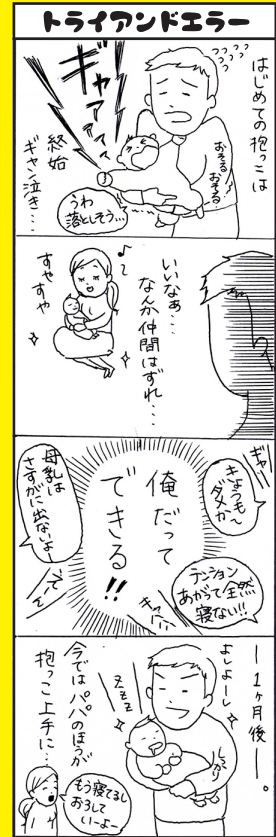 トライアンドエラー
はじめての抱っこは
おそるおそる
ギャアアアア
うわ
落としそう…
終始
ギャン泣き…
いいなぁ…
なんか仲間はずれ…
♪
すやすや
ギャー
きょうも〜
ダメか
俺だって
できる!!
母乳は
さすがに出ないよー
テンション
あがって全然
寝ない!!
キャハハ
ー1ヶ月後ー。
よしよーし
zzz
今ではパパのほうが
抱っこ上手に…
もう寝てるし
おろして
いーよー